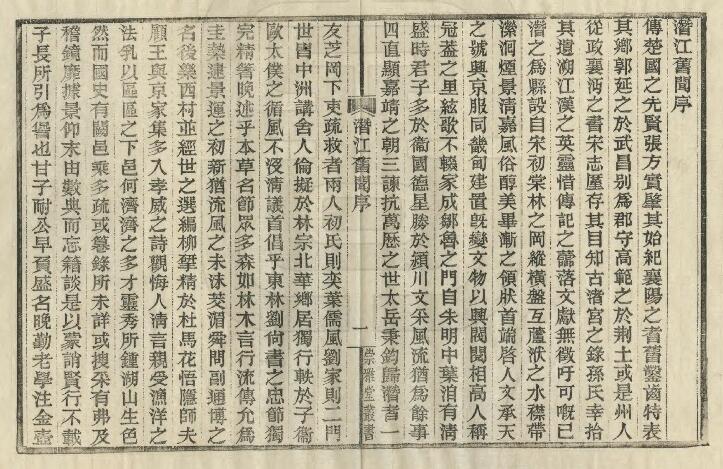 潛江舊聞序
傳楚國之先賢張方實肇其始紀襄陽之耆舊鑿齒特表
其鄉郭延之於武昌別爲郡守高範之於荆土或是州人
從政襄沔之書宋志厪存其目知古渚宮之錄孫氏幸拾
其遺溯江漢之英靈惜傳記之零落文獻無徵吁可嘅已
潛之爲縣設自宋初棠林之岡縱橫盤互蘆洑之水襟帶
瀠洄煙景淸嘉風俗醇美畢漸之領狀首端啓人文承天
之號與京服同畿甸建置旣變文物以興閥閱相高人稱
冠葢之里絃歌不輟家成鄒魯之門自朱明中葉洎有淸
盛時君子多於衞國德星勝於潁川文采風流猶爲餘事
四直顯嘉靖之朝三諫抗萬歷之世太岳秉鈞歸潛者一
潛江舊聞序
一
崇雅堂叢書
友芝岡下吏疏救者兩人初氏則奕葉儒風劉家則二門
世冑中洲講舍人倫擬於林宗北華鄉居獨行軼於子衞
歐太僕之循風不沒淸議首倡乎東林劉尙書之忠節獨
完精箸晚述乎本草名節眾多森如林木言行流傳允爲
圭槷建景運之初新猶流風之未沬莫湄舜問副通博之
名後樂西村並經世之選編柳揅精於杜馬花悟隱師夫
顧王與京家集多入孝威之詩觀悔人淸言親受漁洋之
法乳以區區之下邑何濟濟之多才靈秀所鍾湖山生色
然而國史有闕邑乘多疏或篹錄所未詳或搜采有弗及
稽鏡靡據景仰末由數典而忘籍談是以蒙誚賢行不載
子長所引爲咎也甘子耐公早負盛名晚勤老學注金壺